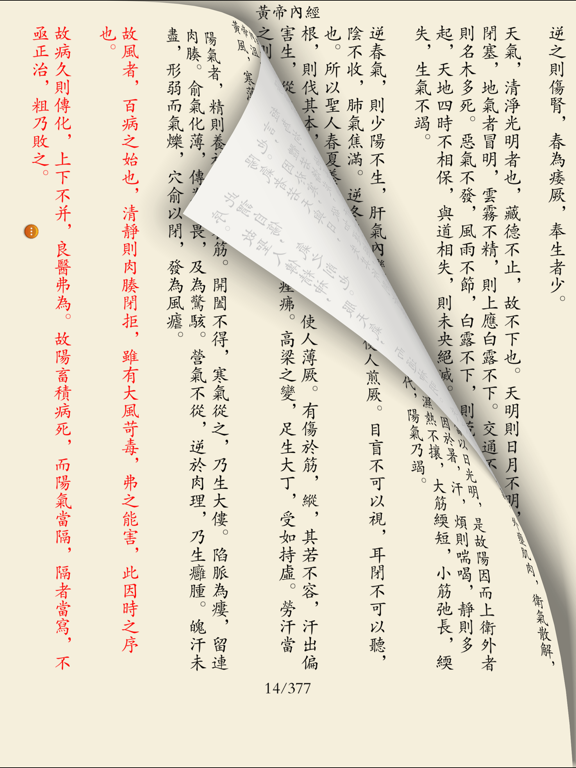 黃帝內經
逆之則傷腎，春為痿厥，奉生者少。
天氣，清淨光明者也，藏德不止，故不下也。天明則日月不明，
閉塞，地氣者冒明，雲霧不精，則上應白露不下。交通不
則名木多死。惡氣不發，風雨不節，白露不下，則
起，天地四時不相保，與道相失，則未央絕滅。
失，生氣不竭。
逆春氣，則少陽不生，肝氣內
陰不收，肺氣焦滿。逆冬
也。所以聖人春夏養
根，則伐其本，
害生，從
之則
肌肉，衛氣散解，
以日光明，是故陽因而上衛外者
因於暑，汗，煩則喘喝，靜則多
濕熱不攘，大筋緛短，小筋弛長，緛
代，陽氣乃竭。
使人煎厥。目盲不可以視，耳閉不可以聽，
使人薄厥。有傷於筋，縱，其若不容，汗出偏
痤疿。高梁之變，足生大丁，受如持虛。勞汗當
風，寒薄
陽氣者，精則養 筋。開闔不得，寒氣從之，乃生大僂。陷脈為瘻，留連
肉腠。俞氣化薄，傳 畏，及為驚駭。營氣不從，逆於肉理，乃生癰腫。魄汗未
盡，形弱而氣爍，穴俞以閉，發為風瘧。
故風者，百病之始也，清靜則肉腠閉拒，雖有大風苛毒，弗之能害，此因時之序
也。
故病久則傳化，上下不并，良醫弗為。故陽畜積病死，而陽氣當隔，隔者當寫，不
亟正治，粗乃敗之。
14/377